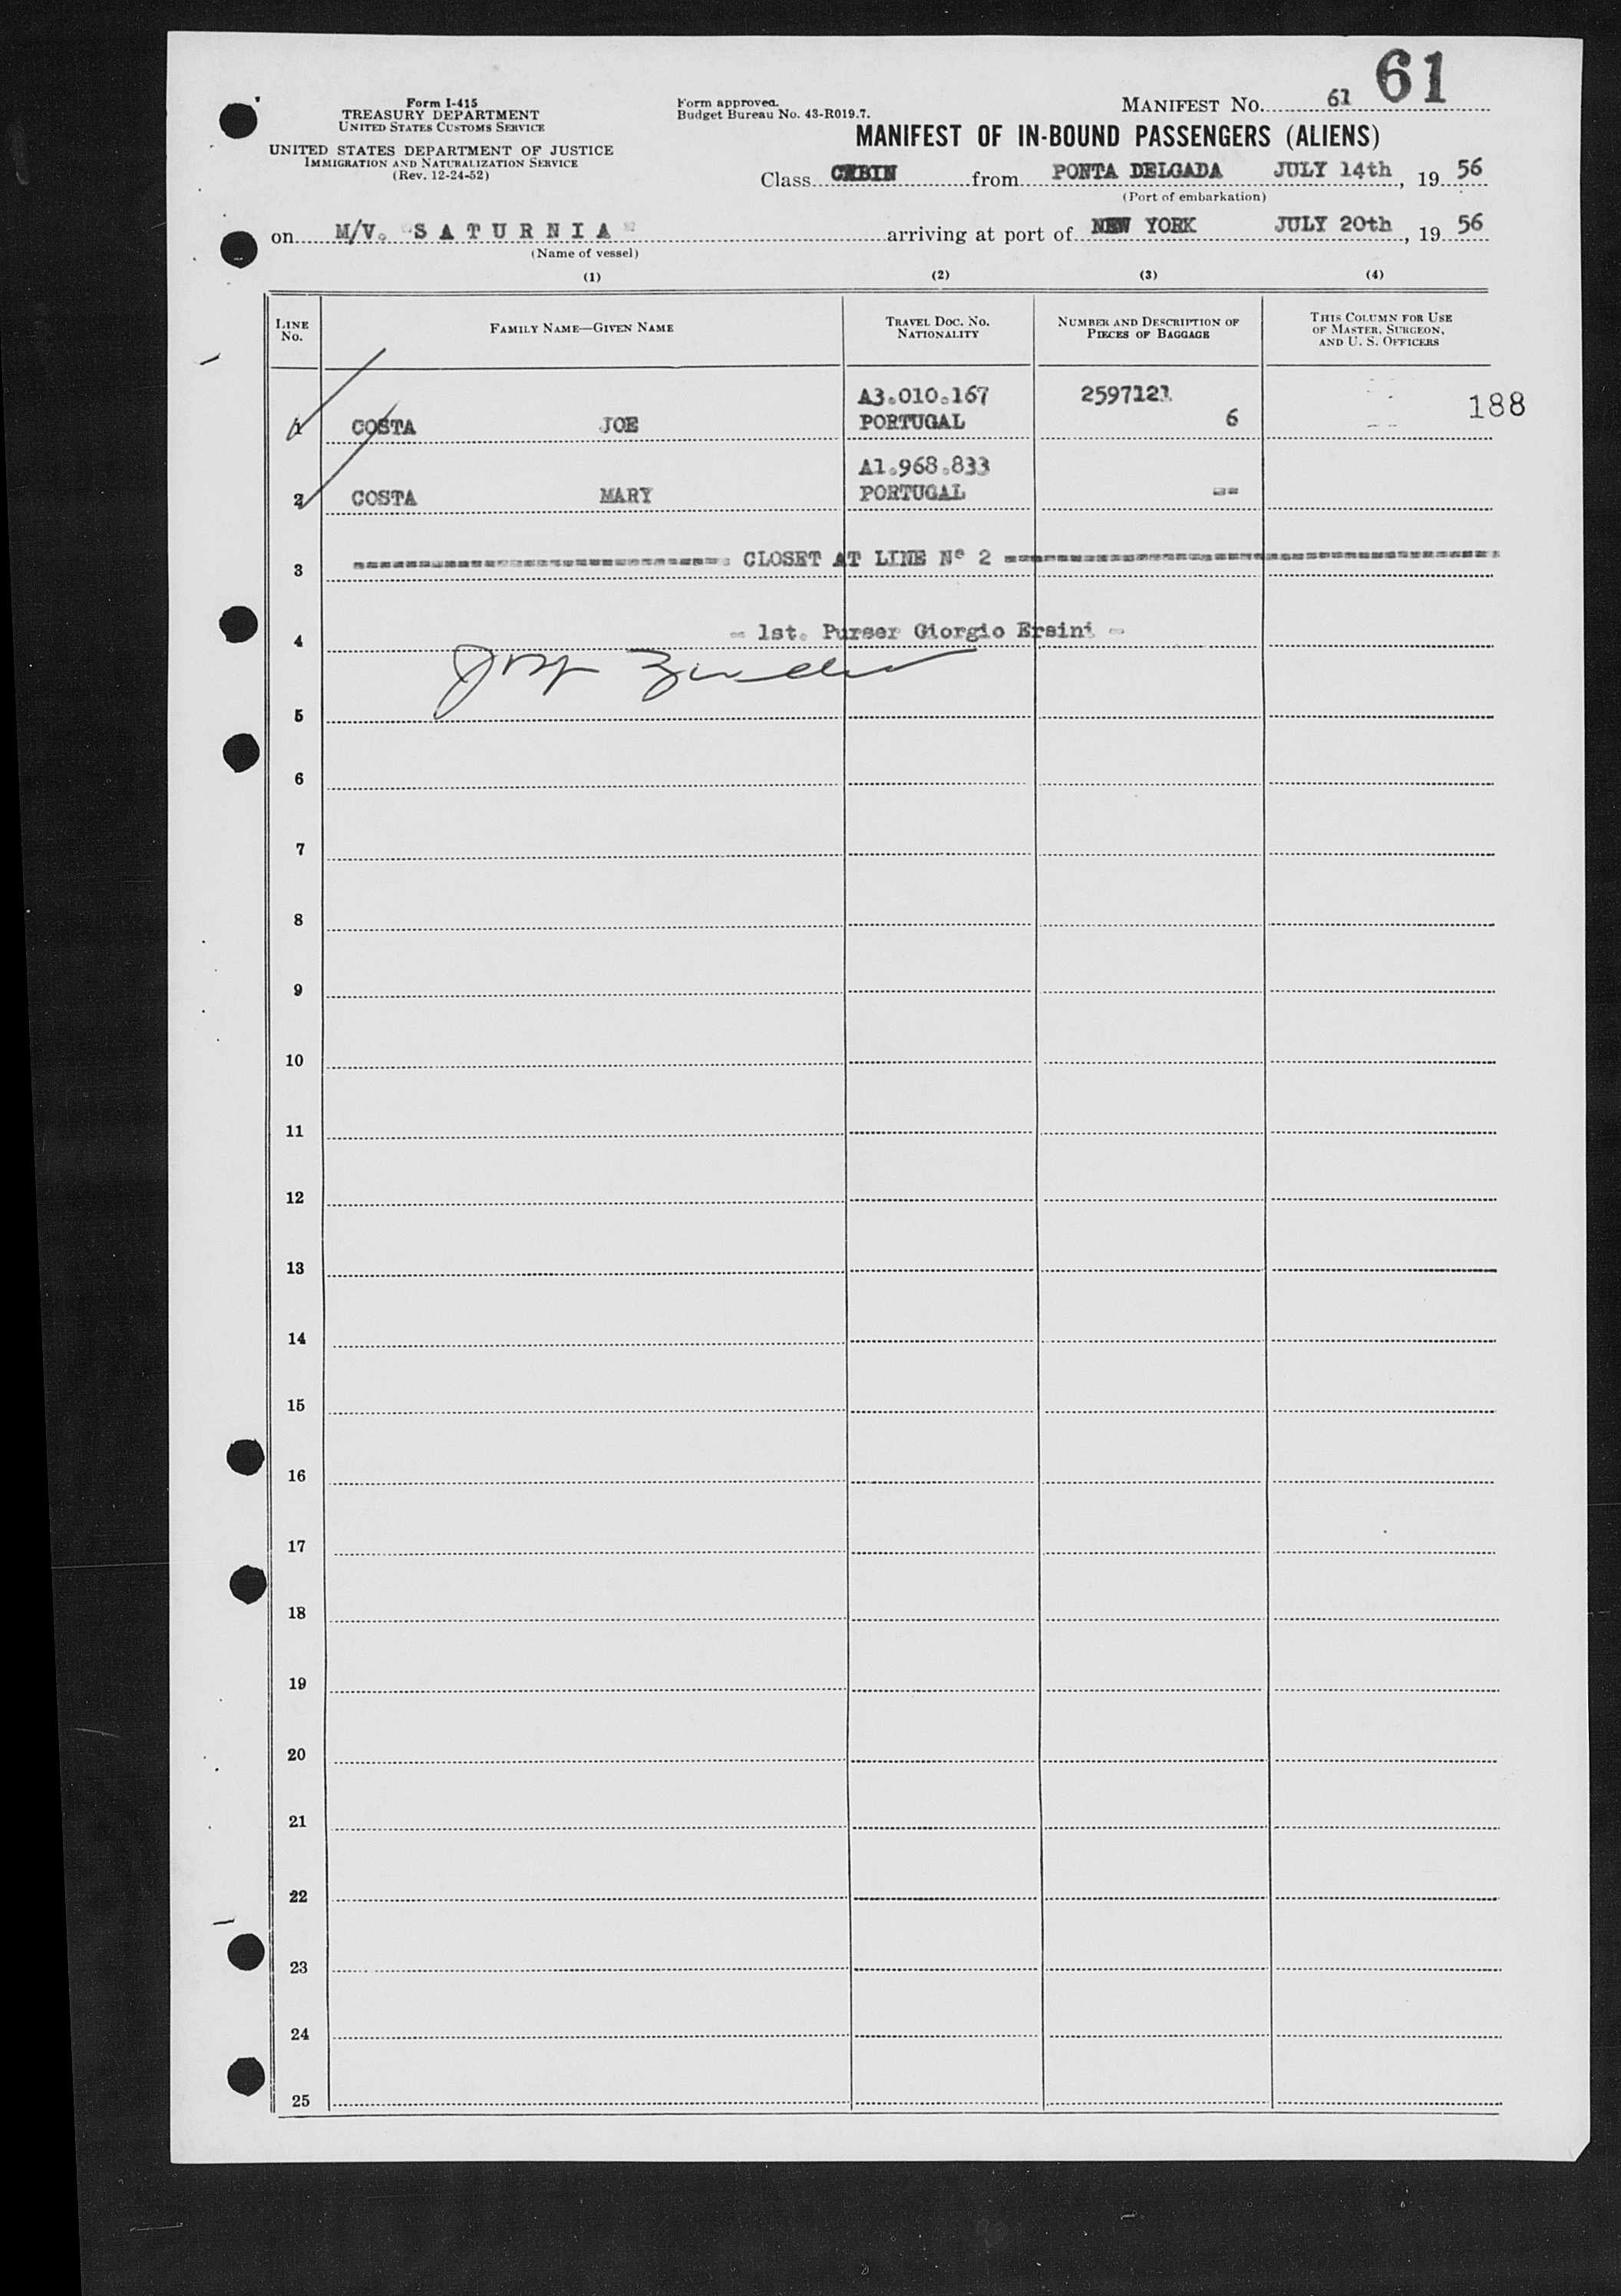 61
Form I-415
TREASURY DEPARTMENT
UNITED STATES CUSTOMS SERVICE
UNITED STATES DEPARTMENT OF JUSTICE
IMMIGRATION AND NATURALIZATION SERVICE
(Rev. 12-24-52)
Form approved.
Budget Bureau No. 43-R019.7.
MANIFEST NO. 61
MANIFEST OF IN-BOUND PASSENGERS (ALIENS)
Class CABIN from PONTA DELGADA JULY 14th, 19 56
(Port of embarkation)
on M/V. "S A T U R N I A" arriving at port of NEW YORK JULY 20th, 19 56
(Name of vessel)
(1) (2) (3) (4)
LINE NO. FAMILY NAME—GIVEN NAME TRAVEL DOC. NO. NATIONALITY NUMBER AND DESCRIPTION OF PIECES OF BAGGAGE THIS COLUMN FOR USE OF MASTER, SURGEON, AND U. S. OFFICERS
A3.010.167 2597121
188
1 COSTA JOE PORTUGAL 6
A1.968.833
2 COSTA MARY PORTUGAL --
3 CLOSET AT LINE Nº 2
4 - 1st. Purser Giorgio Ersini -
5
6
7
8
9
10
11
12
13
14
15
16
17
18
19
20
21
22
23
24
25